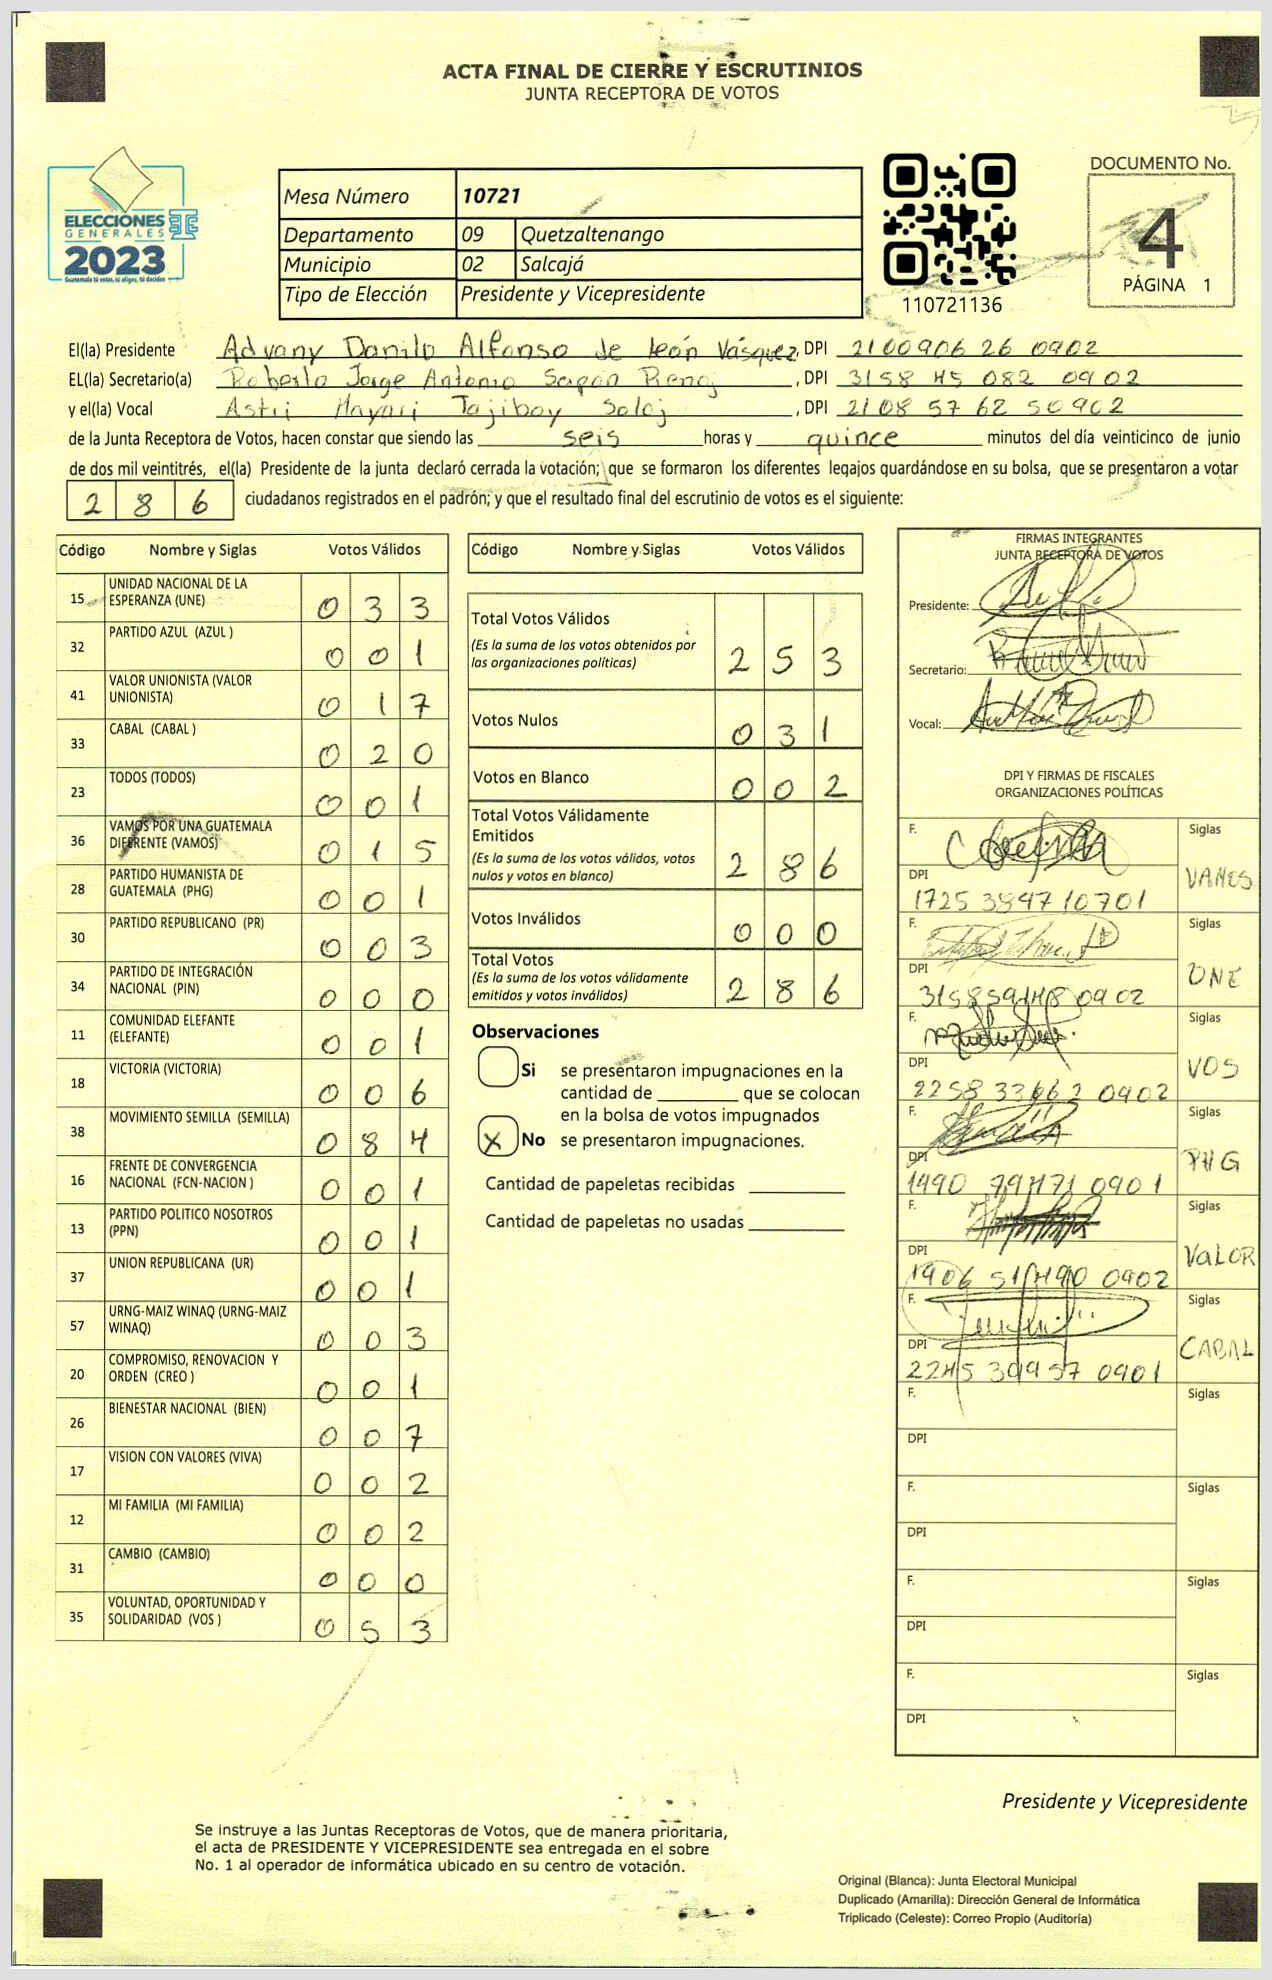 ACTA FINAL DE CIERRE Y ESCRUTINIOS
JUNTA RECEPTORA DE VOTOS
ELECCIONES
GENERALES
2023
Guatemala tú votas, tú eliges, tú decides
Mesa Número 10721
Departamento 09 Quetzaltenango
Municipio 02 Salcajá
Tipo de Elección Presidente y Vicepresidente
110721136
DOCUMENTO No.
4
PÁGINA 1
El(la) Presidente Advany Danilo Alfonso de León Vásquez, DPI 2100906 26 0902
EL(la) Secretario(a) Roberto Jorge Antonio, DPI 3158 45 082 0902
y el(la) Vocal, DPI 2108 57 62 50902
de la Junta Receptora de Votos, hacen constar que siendo las seis horas y quince minutos del día veinticinco de junio
de dos mil veintitrés, el(la) Presidente de la junta declaró cerrada la votación; que se formaron los diferentes legajos guardándose en su bolsa, que se presentaron a votar
286 ciudadanos registrados en el padrón; y que el resultado final del escrutinio de votos es el siguiente:
Código Nombre y Siglas Votos Válidos
15 UNIDAD NACIONAL DE LA ESPERANZA (UNE) 033
32 PARTIDO AZUL (AZUL ) 001
41 VALOR UNIONISTA (VALOR UNIONISTA) 017
33 CABAL (CABAL ) 020
23 TODOS (TODOS) 001
36 VAMOS POR UNA GUATEMALA DIFERENTE (VAMOS) 015
28 PARTIDO HUMANISTA DE GUATEMALA (PHG) 001
30 PARTIDO REPUBLICANO (PR) 003
34 PARTIDO DE INTEGRACIÓN NACIONAL (PIN) 000
11 COMUNIDAD ELEFANTE (ELEFANTE) 001
18 VICTORIA (VICTORIA) 006
38 MOVIMIENTO SEMILLA (SEMILLA) 084
16 FRENTE DE CONVERGENCIA NACIONAL (FCN-NACION ) 001
13 PARTIDO POLITICO NOSOTROS (PPN) 001
37 UNION REPUBLICANA (UR) 001
57 URNG-MAIZ WINAQ (URNG-MAIZ WINAQ) 003
20 COMPROMISO, RENOVACION Y ORDEN (CREO ) 001
26 BIENESTAR NACIONAL (BIEN) 007
17 VISION CON VALORES (VIVA) 002
12 MI FAMILIA (MI FAMILIA) 002
31 CAMBIO (CAMBIO) 000
35 VOLUNTAD, OPORTUNIDAD Y SOLIDARIDAD (VOS ) 053
Código Nombre y Siglas Votos Válidos
Total Votos Válidos
(Es la suma de los votos obtenidos por
las organizaciones políticas) 253
Votos Nulos 031
Votos en Blanco 002
Total Votos Válidamente
Emitidos
(Es la suma de los votos válidos, votos
nulos y votos en blanco) 286
Votos Inválidos 000
Total Votos
(Es la suma de los votos válidamente
emitidos y votos inválidos) 286
Observaciones
Si se presentaron impugnaciones en la
cantidad de ________ que se colocan
en la bolsa de votos impugnados
X No se presentaron impugnaciones.
Cantidad de papeletas recibidas
Cantidad de papeletas no usadas
FIRMAS INTEGRANTES
JUNTA RECEPTORA DE VOTOS
Presidente:
Secretario:
Vocal:
DPI Y FIRMAS DE FISCALES
ORGANIZACIONES POLÍTICAS
F. Siglas
DPI VAMOS
1725 3847 10701
F. Siglas
DPI UNE
F. Siglas
DPI VOS
F. Siglas
DPI PHG
F. Siglas
DPI VALOR
F. Siglas
DPI CABAL
F. Siglas
DPI
F. Siglas
DPI
F. Siglas
DPI
F. Siglas
DPI
Presidente y Vicepresidente
Se instruye a las Juntas Receptoras de Votos, que de manera prioritaria,
el acta de PRESIDENTE Y VICEPRESIDENTE sea entregada en el sobre
No. 1 al operador de informática ubicado en su centro de votación.
Original (Blanca): Junta Electoral Municipal
Duplicado (Amarilla): Dirección General de Informática
Triplicado (Celeste): Correo Propio (Auditoría)